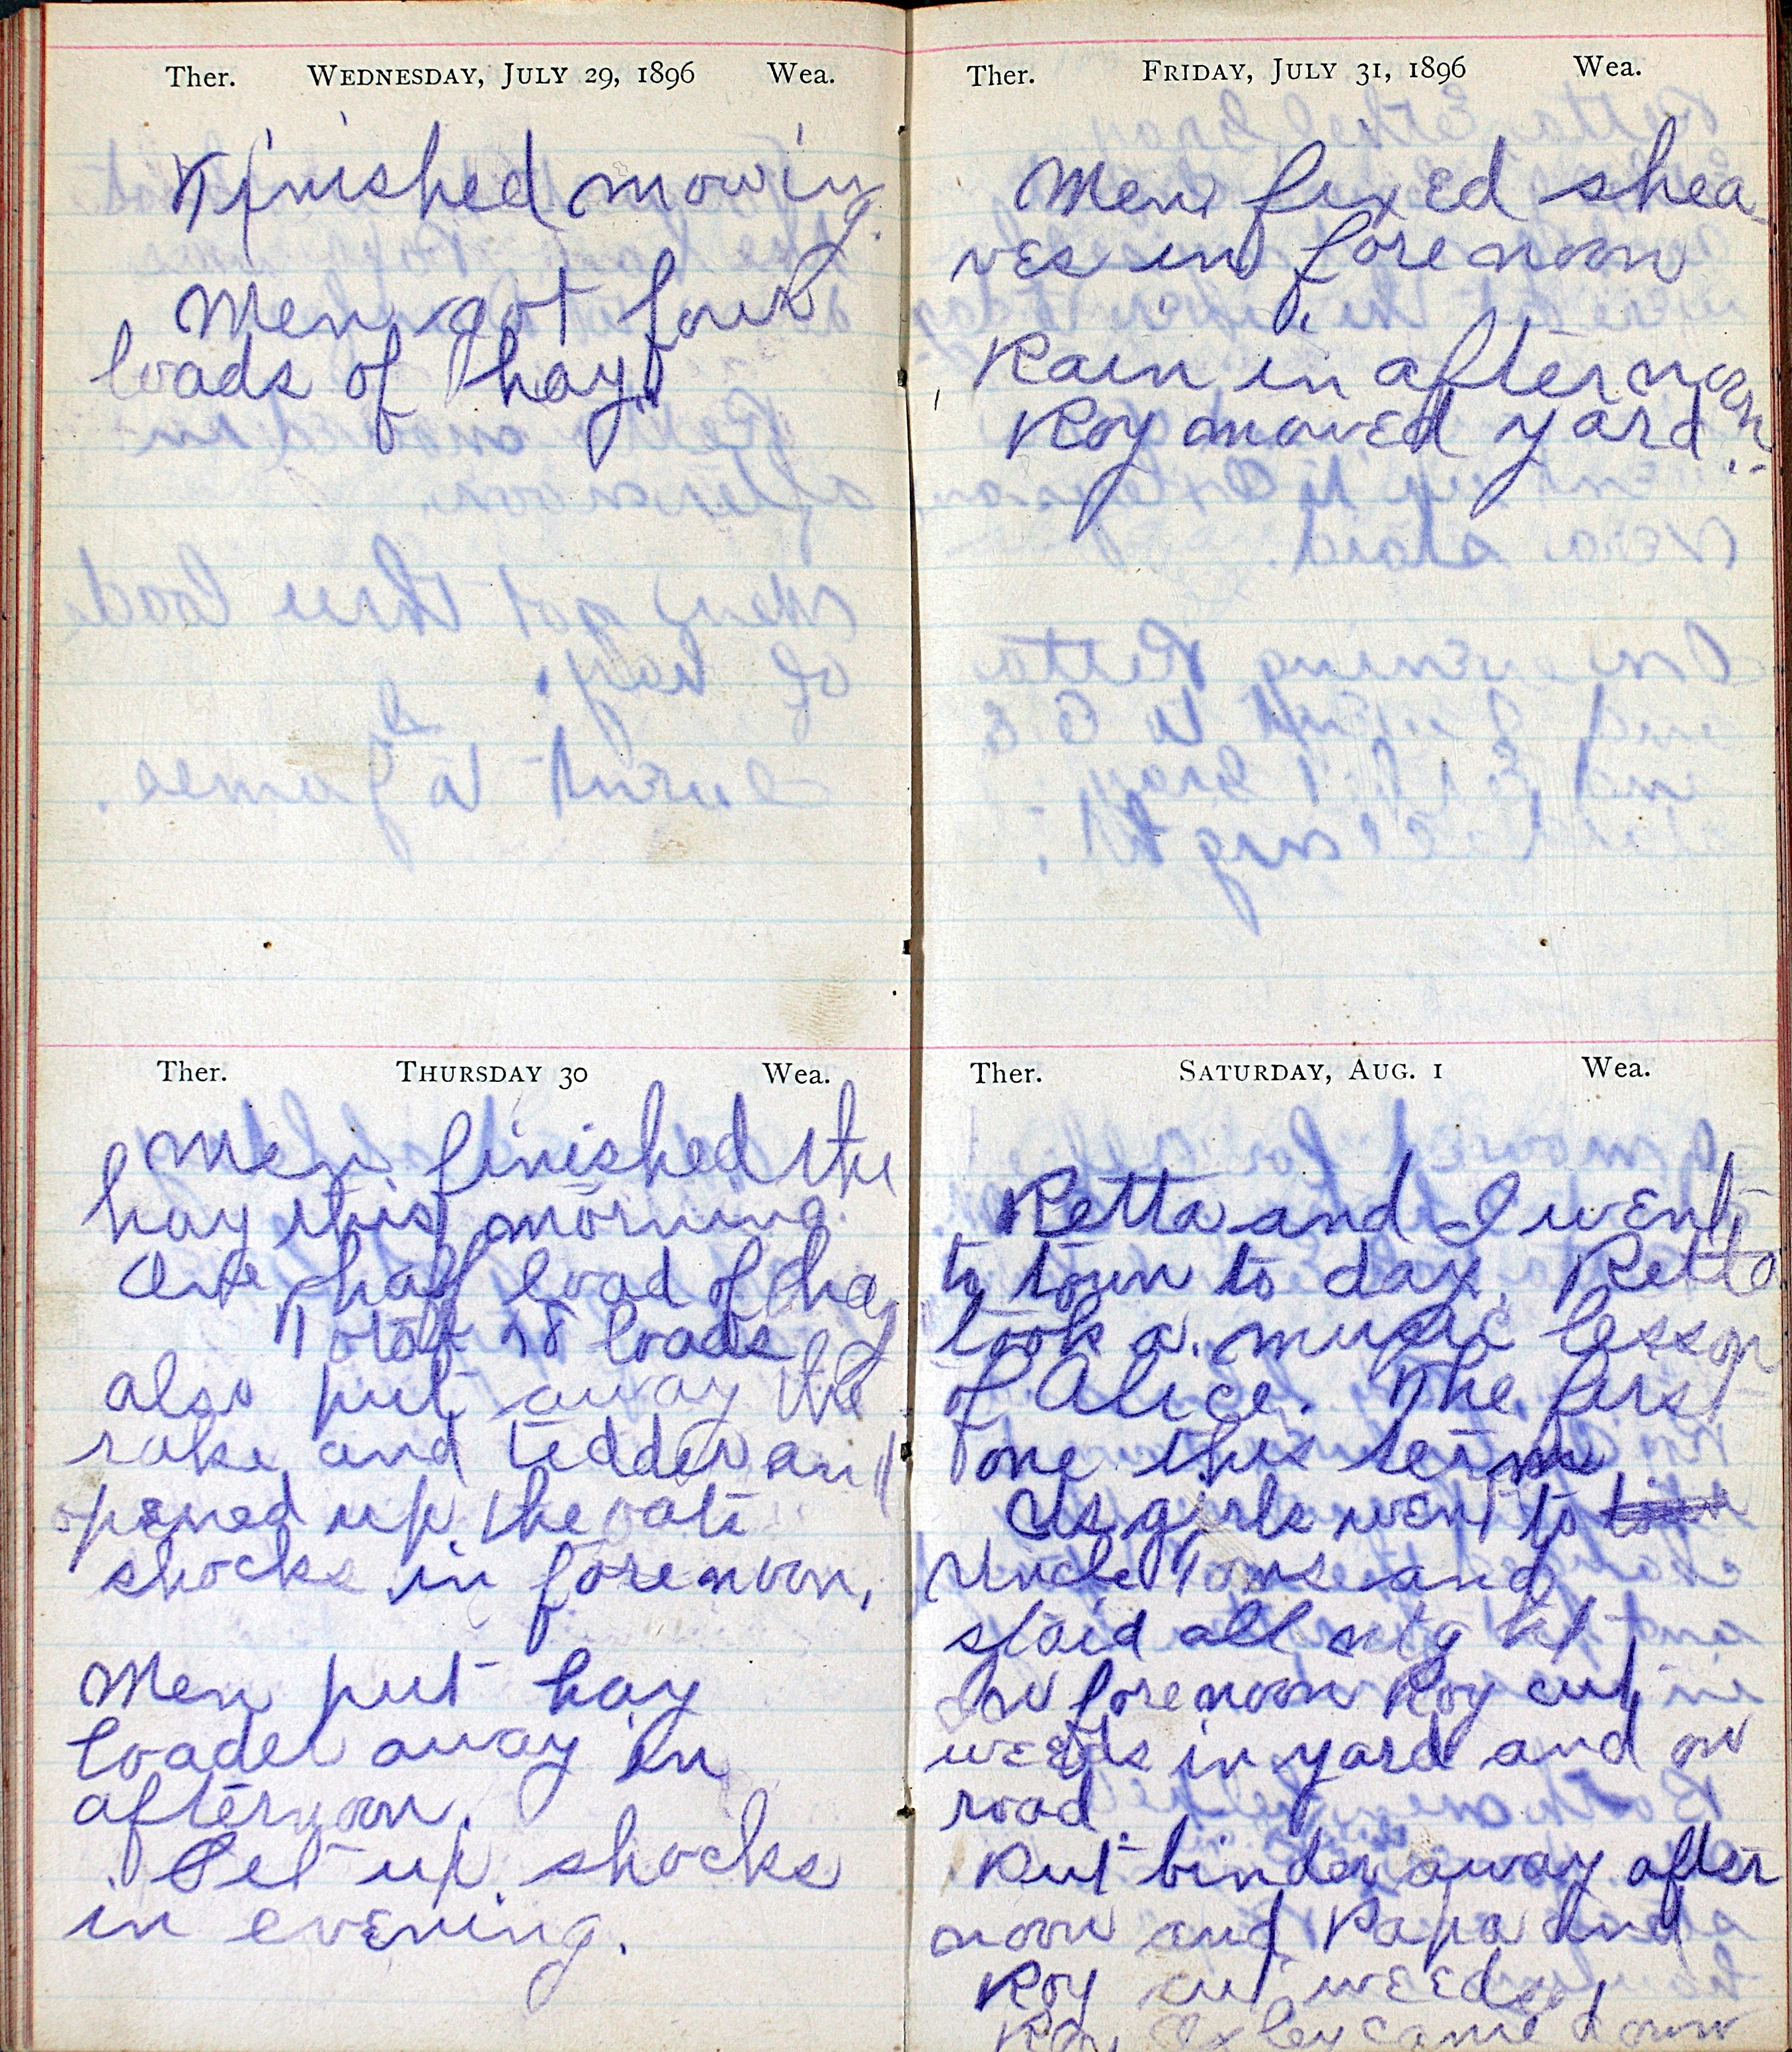 Ther. WEDNESDAY, JULY 29, 1896 Wea.
Finished mowing.
Men got four
loads of hay.
Ther. THURSDAY 30 Wea.
Men finished the
hay this morning.
One half load of hay
Total 18 loads
also put away the
rake and tedder and
opened up the oats
shocks in forenoon,
Men put hay
loader away in
afternoon.
Set up shocks
in evening.
Ther. FRIDAY, JULY 31, 1896 Wea.
Men fixed shea
ves in forenoon
Rain in afternoon
Roy mowed yard.
Ther. SATURDAY, AUG. 1 Wea.
Retta and I went
to town to day. Retta
took a music lesson
of Alice. The first
one this term
Us girls went to
Uncle Toms and
staid all night
In forenoon Roy cut
weeds in yard and on
road.
Put binder away after
noon and Papa and
Roy cut weeds,
Roy Exley came down